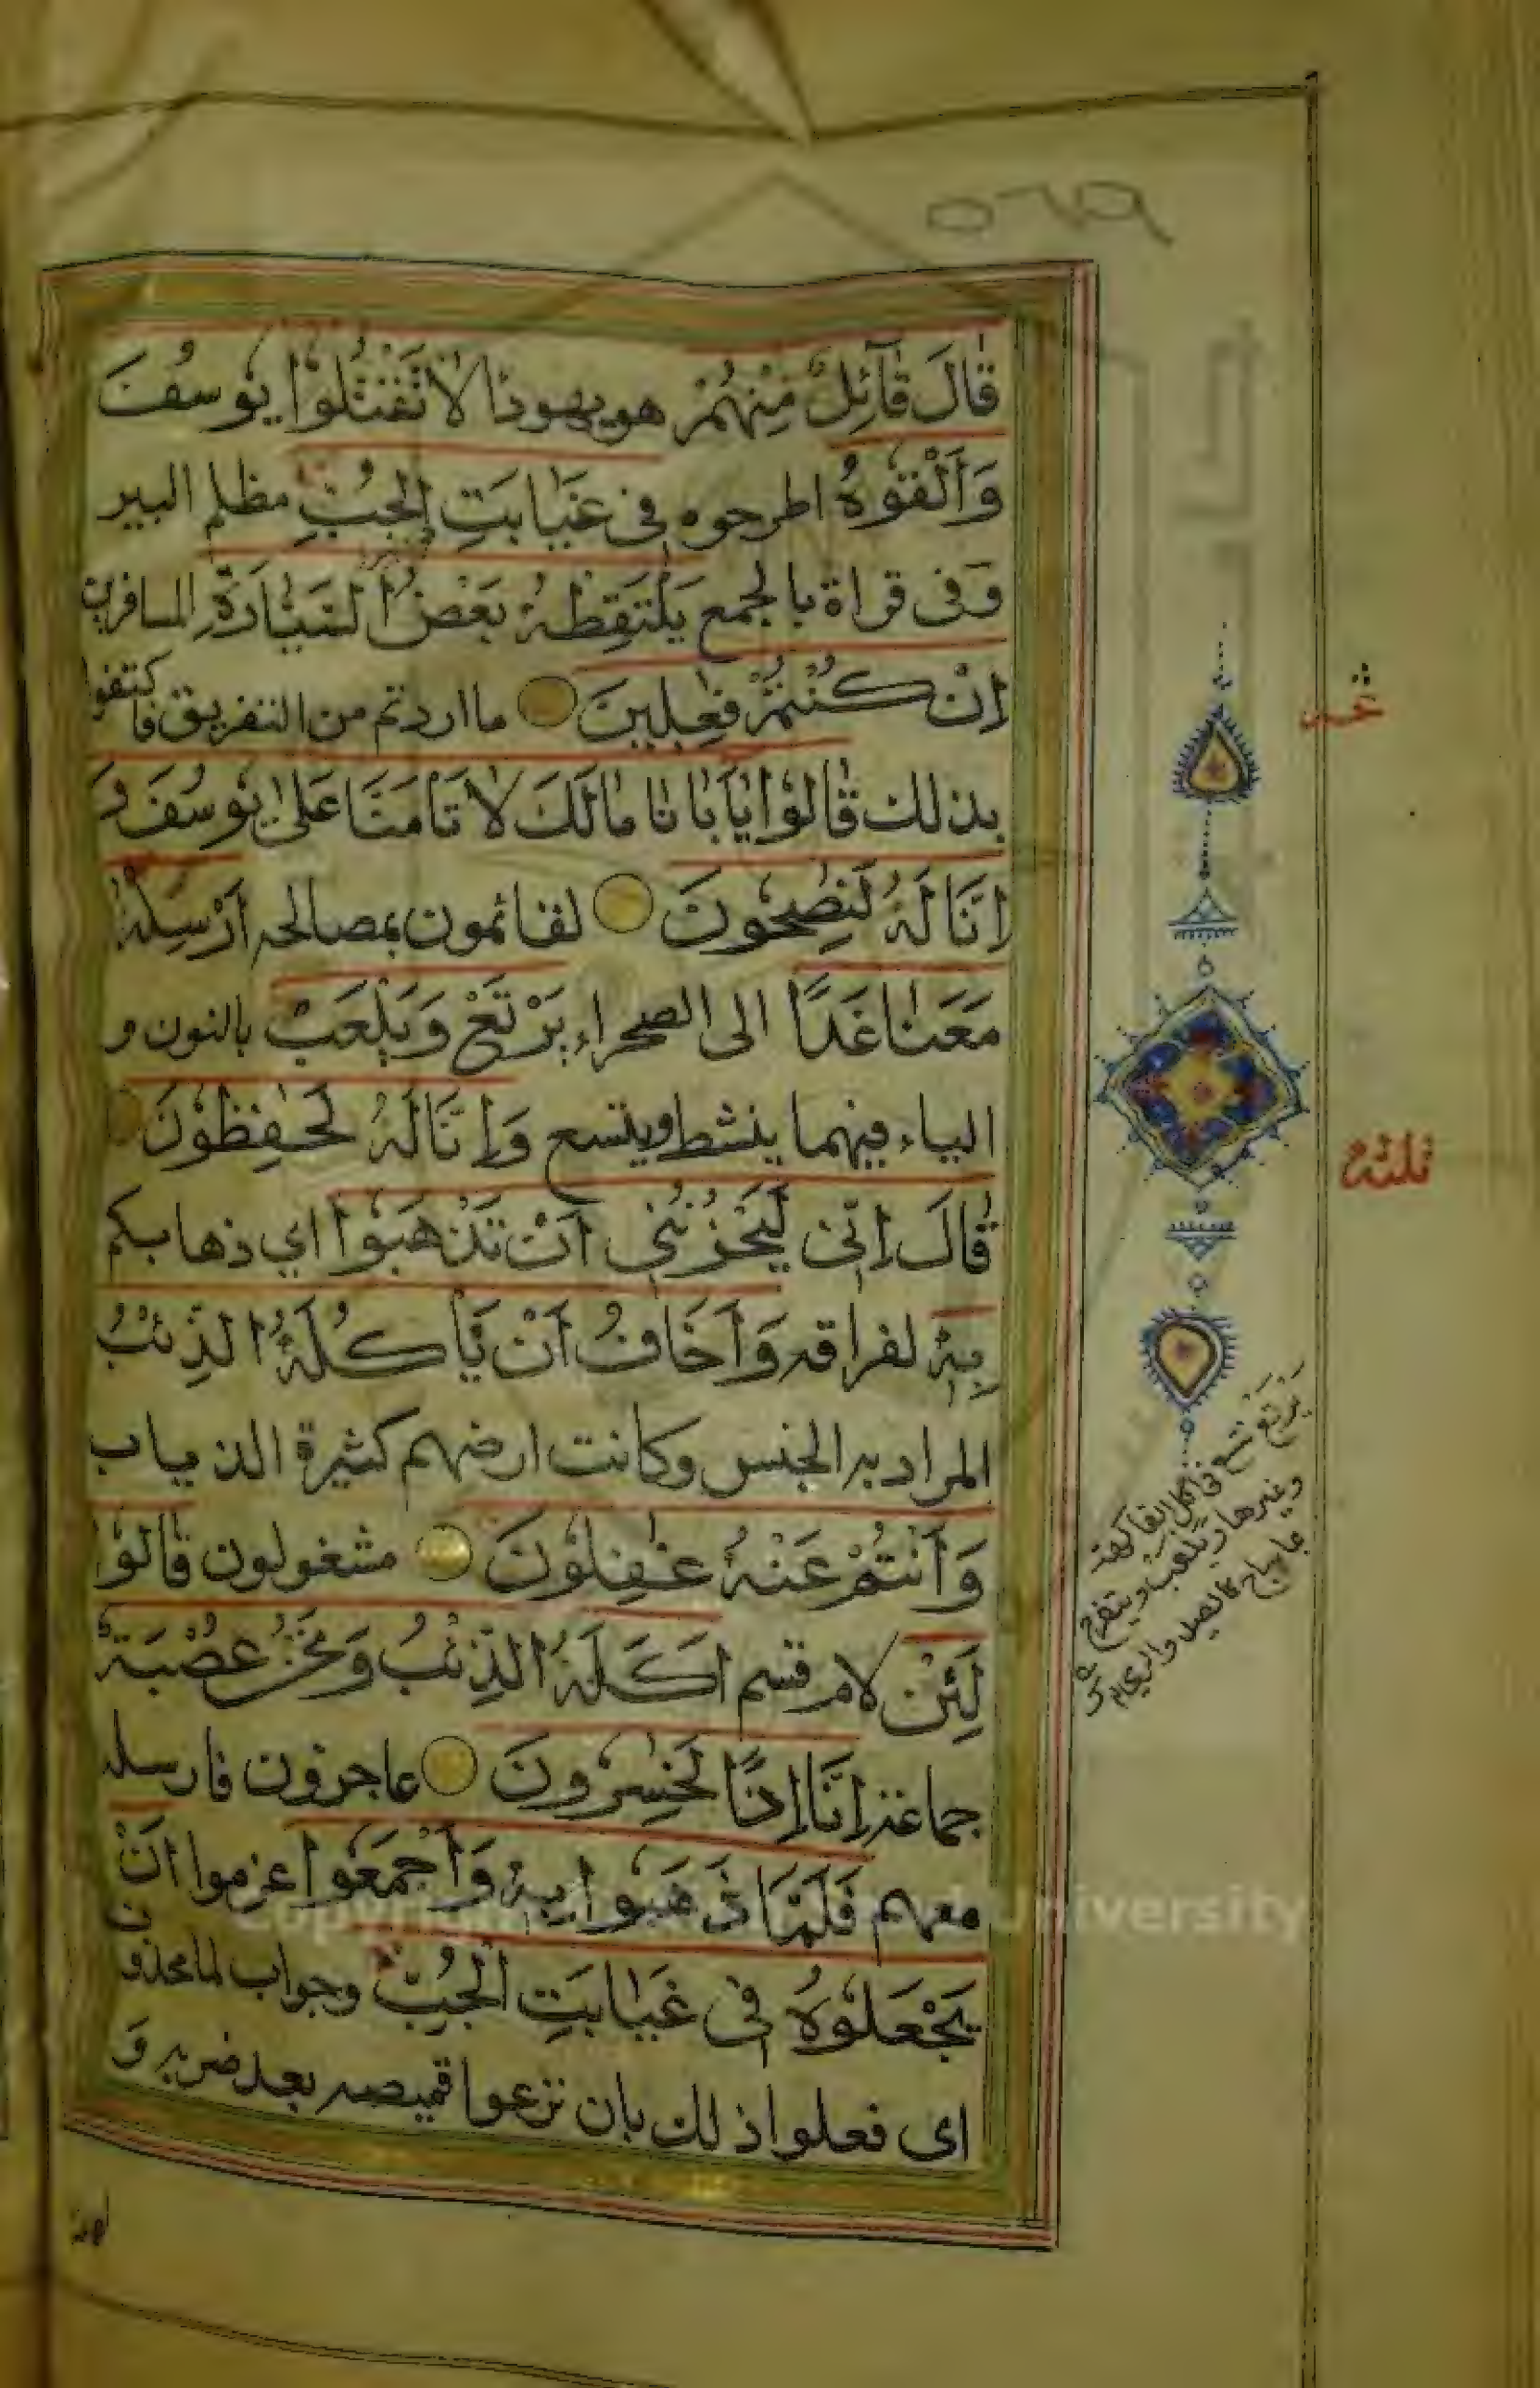 قَالَ قَآئِلٌ مِّنْهُمْ هو يهودا لَا تَقْتُلُوا يُوسُفَ
وَأَلْقُوهُ اطرحوه فِى غَيَابَتِ الْجُبِّ مظلم البير
وفى قراة بالجمع يَلْتَقِطْهُ بَعْضُ السَّيَّارَةِ المسافرين
اِنْ كُنْتُمْ فٰعِلِينَ ما اردتم من التفريق فاكتفوا
بذلك قَالُوْا يَا أَبَانَا مَالَكَ لَا تَأْمَنَّا عَلٰى يُوسُفَ وَ
اِنَّا لَهُ لَنٰصِحُونَ لقائمون بمصالحه اَرْسِلْهُ
مَعَنَا غَدًا الى الصحراء يَرْتَعْ وَيَلْعَبْ بالنون و
الياء فيهما ينشط ويتسع وَاِنَّا لَهُ لَحٰفِظُوْنَ
قَالَ اِنِّى لَيَحْزُنُنِى اَنْ تَذْهَبُوْا اي ذهابكم
بِهٖ لفراقه وَاَخَافُ اَنْ يَّأْكُلَهُ الذِّئْبُ
المراد به الجنس وكانت ارضهم كثيرة الذياب
وَاَنْتُمْ عَنْهُ غٰفِلُوْنَ مشغولون قَالُوْا
لَئِنْ لام قسم اَكَلَهُ الذِّئْبُ وَنَحْنُ عُصْبَةٌ
جماعة اِنَّا اِذًا لَخٰسِرُوْنَ عاجزون فارسله
معهم فَلَمَّا ذَهَبُوا بِهٖ وَاَجْمَعُوا عزموا اَنْ
يَجْعَلُوْهُ فِى غَيَابَتِ الْجُبِّ وجواب لما محذوف
اى فعلوا ذلك بان نزعوا قميصه بعد ضربه و
ثلثة
يَرْتَعْ فى اكل الفاكهة
وغيرها ويلعب ويتفرج
Copyright University